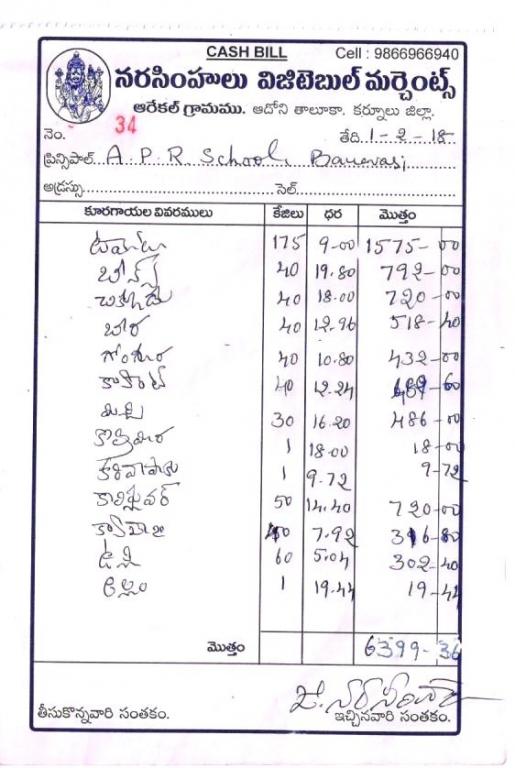 CASH BILL Cell : 9866966940
నరసింహులు విజిటెబుల్ మర్చెంట్స్
ఆరేకల్ గ్రామము. ఆదోని తాలూకా. కర్నూలు జిల్లా.
నెం. 34 తేది. 1-2-18
ప్రిన్సిపాల్. A. P. R School,
అడ్రస్సు. సెల్.
కూరగాయల వివరములు కేజిలు ధర మొత్తం
టమోటు 175 9-00 1575-00
బీన్స్ 40 19.80 792-00
చిక్కుడు 40 18.00 720-00
బీర 40 12.96 518-40
గోంగూర 40 10.80 432-00
40 12.24
మిర్చి 30 16.20 486-00
కొత్తిమిర 1 18.00 18-00
కరివేపాకు 1 9.72 9-72
కాలిఫ్లవర్ 50 14.40 720-00
7.92 80
ఉల్లి 60 5.04 302-40
అల్లం 1 19.44 19-44
మొత్తం 6399-36
తీసుకొన్నవారి సంతకం. ఇచ్చినవారి సంతకం.